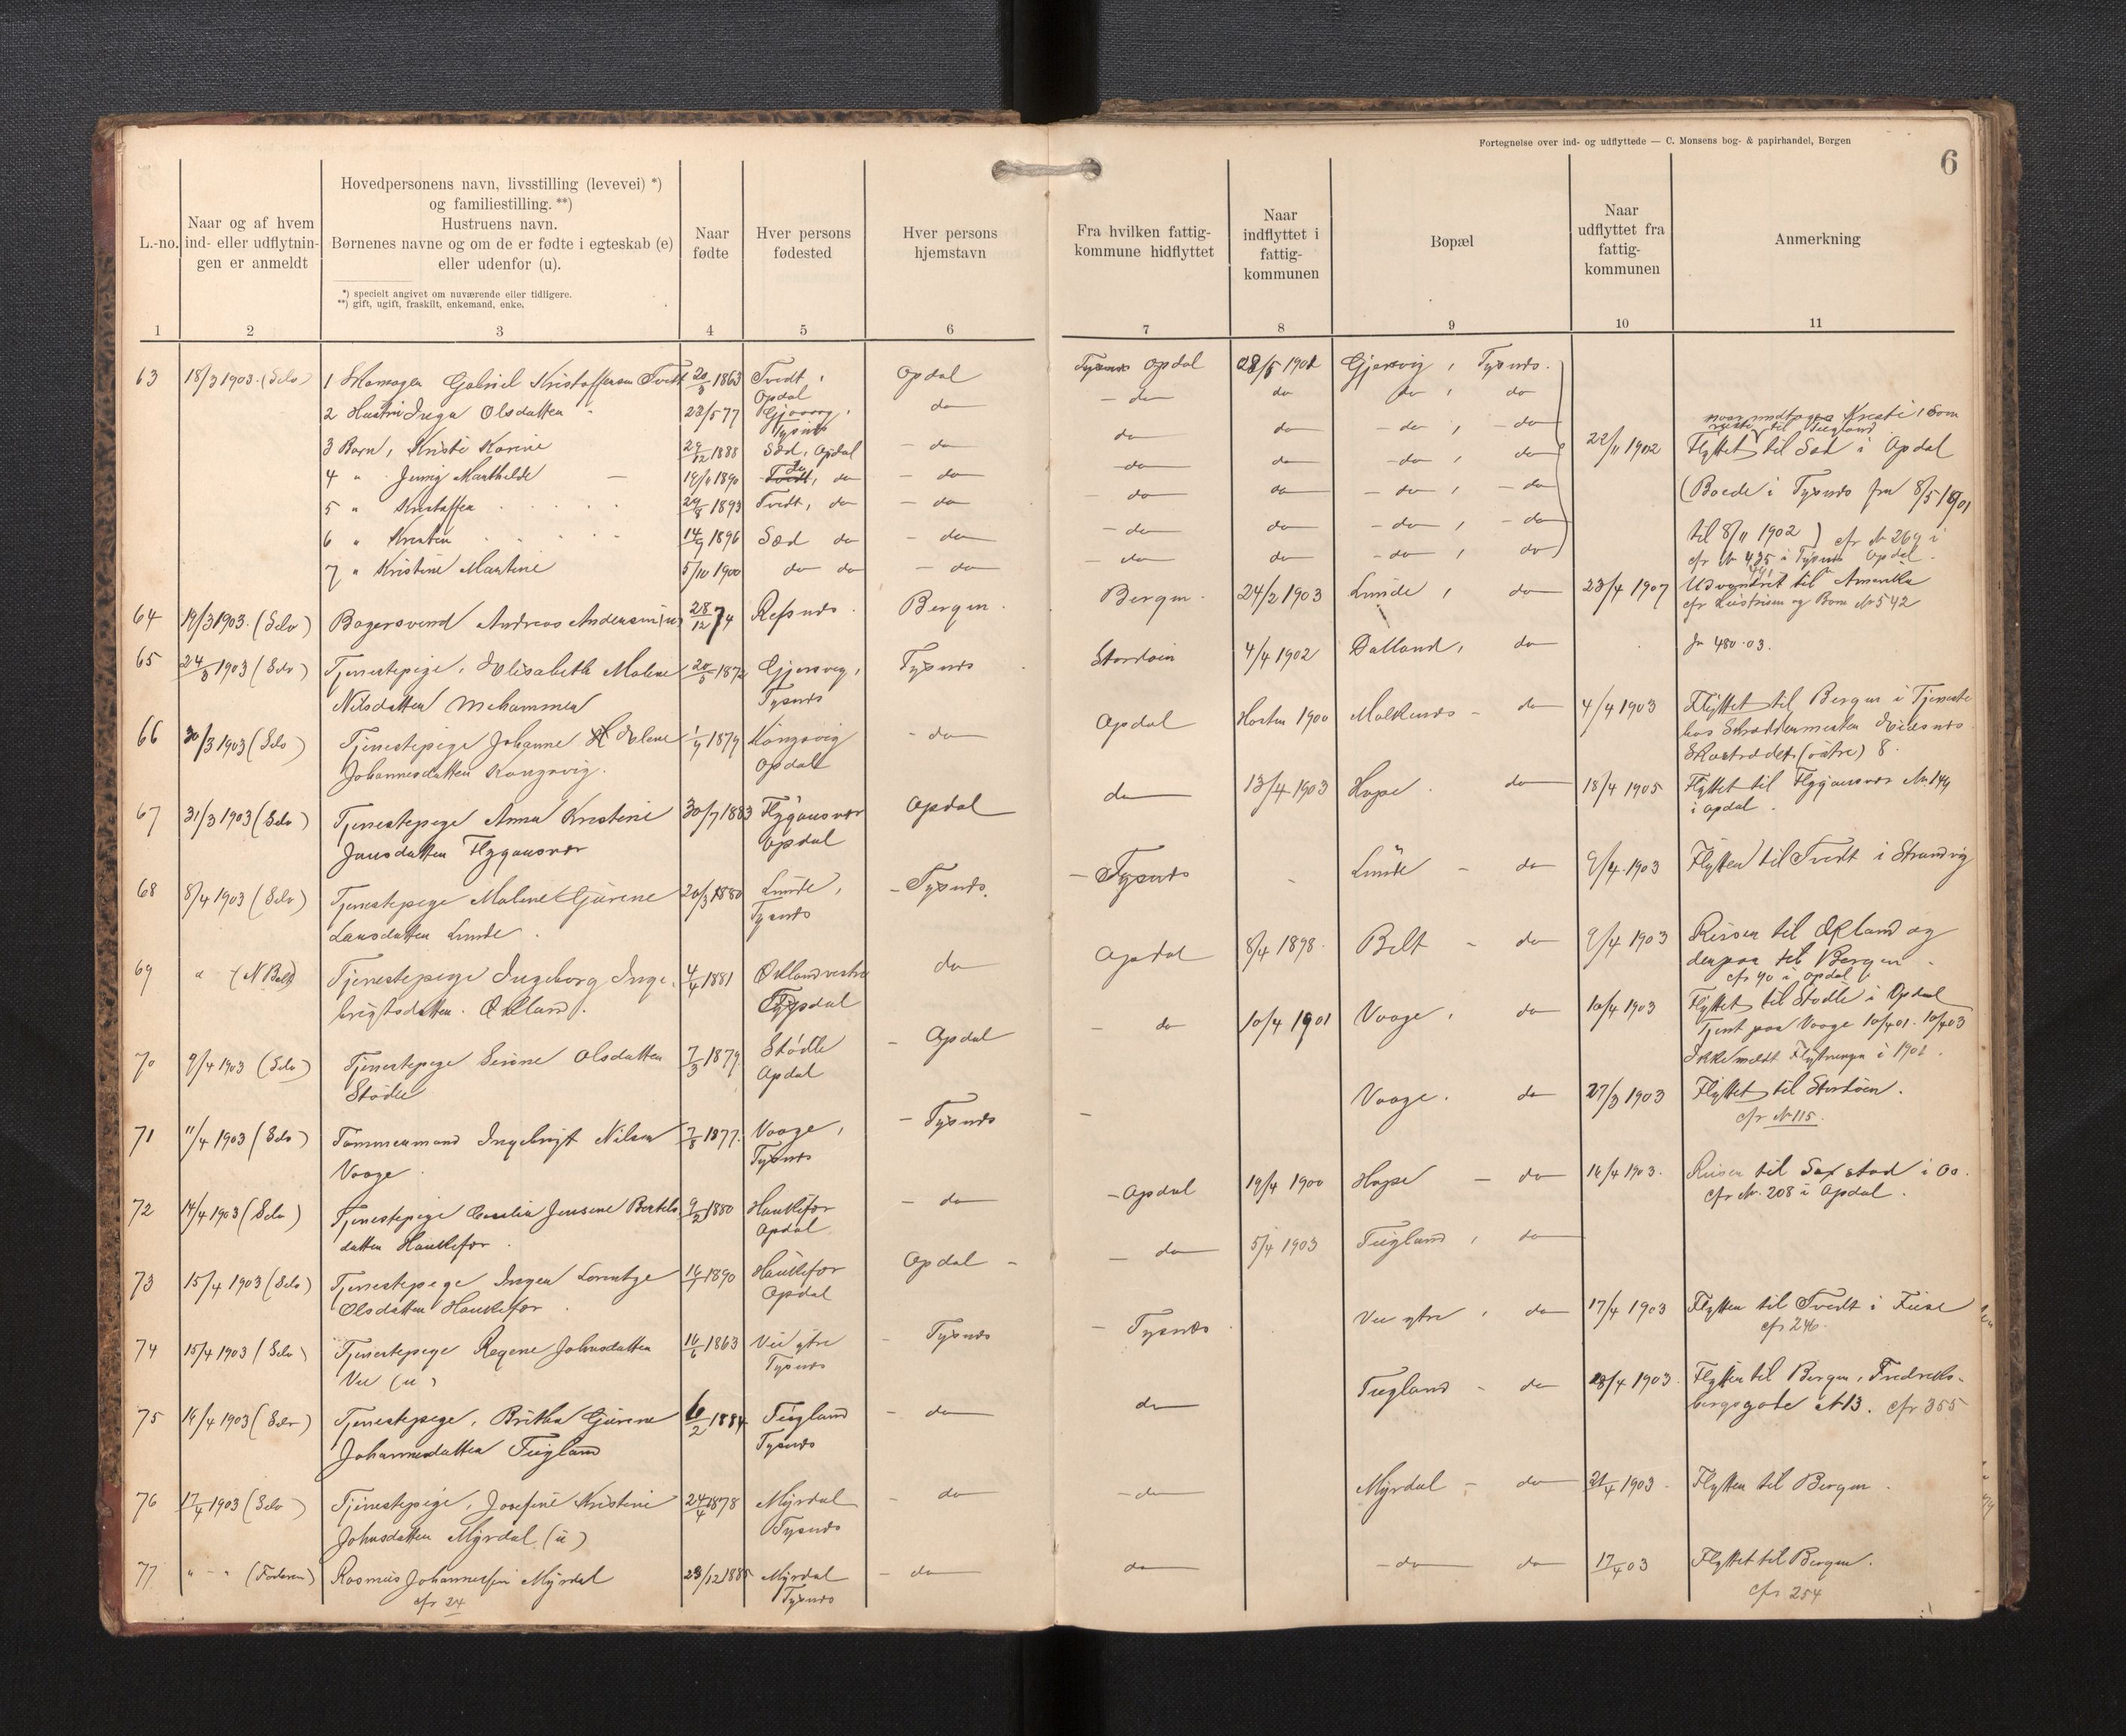 Fortegnelse over ind- og udflyttede — C. Monsens bog- & papirhandel, Bergen
6
L.-no.
Naar og af hvem
ind- eller udflytnin-
gen er anmeldt
Hovedpersonens navn, livsstilling (levevei) *)
og familiestilling. **)
Hustruens navn.
Børnenes navne og om de er fødte i egteskab (e)
eller udenfor (u).
*) specielt angivet om nuværende eller tidligere.
**) gift, ugift, fraskilt, enkemand, enke.
Naar
fødte
Hver persons
fødested
Hver persons
hjemstavn
Fra hvilken fattig-
kommune hidflyttet
Naar
indflyttet i
fattig-
kommunen
Bopæl
Naar
udflyttet fra
fattig-
kommunen
Anmerkning
1 2 3 4 5 6 7 8 9 10 11
63 18/3 1903 (Selv) 1 Skomager Gabriel Kristoffersen Tvedt 20/3 1863 Tvedt, Opdal Opdal Opdal 1901 Gjersvig, Tysnes
2 Hustru Inga Olsdatter 22/5 77 Gjersvig, Tysnes do do do do, do
3 Barn, Kristi Karine 1888 Sæd, Opdal do do do do, do 22/11 1902 Flyttet til Sæd i Opdal
4 " Jenny Mathilde 1890 do do do do do, do
5 " Kristoffer 1893 Tvedt, do do do do do, do (Boede i Tysnes fra 8/5 1901
6 " Kristen 14/9 1896 Sæd do do do do do, do til 8/11 1902) cfr No 269 i
7 " Kristine Martine 5/10 1900 do do do do do do, do cfr No 435 i Tysnes Opdal
64 19/3 1903 (Selv) Bagersvend Andreas Andersen (u) 28/12 74 Refsnes Bergen Bergen 24/2 1903 Lunde, do 23/4 1907 Udvandret til Amerika
cfr Hustruen og Born No 542
65 24/3 1903 (Selv) Tjenestepige, Elisabeth Malene 20/5 1872 Gjersvig, Tysnes Stordøen 4/4 1902 Dalland, do Jr 480-03.
Nilsdatter Mehammer Tysnes
66 30/3 1903 (Selv) Tjenestepige Johanne Helene 1/9 1879 Kongsvig do Opdal Høsten 1900 Malkenes do 4/4 1903 Flyttet til Bergen i Tjeneste
Johannesdatter Kongsvig. Opdal hos Skræddermester
Skostrædet (østre) 8.
67 31/3 1903 (Selv) Tjenestepige Anna Kristine 30/7 1883 Flygansvær Opdal do 13/4 1903 Hope do 18/4 1905 Flyttet til Flygansvær No 149
Jansdatter Flygansvær Opdal i Opdal.
68 8/4 1903 (Selv) Tjenestepige Malene Gurine 20/3 1880 Lunde, Tysnes Tysnes Lunde do 9/4 1903 Flytter til Tvedt i Strandvig
Larsdatter Lunde Tysnes
69 " (N Belt) Tjenestepige Ingeborg Inge- 4/4 1881 Økland vestre do Opdal 8/4 1898 Belt do 9/4 1903 Reiser til Økland og
brigtsdatter Økland. Opdal derpaa til Bergen
cfr 90 i Opdal
70 9/4 1903 (Selv) Tjenestepige Serine Olsdatter 7/3 1879 Stødle Opdal do 10/4 1901 Vaage, do 10/4 1903 Flyttet til Stødle i Opdal
Stødle Opdal Tjent paa Vaage 10/4 01 - 10/4 03
Ikke meldt Flytningen i 1901.
71 11/4 1903 (Selv) Tømmermand Ingebrigt Nilsen 7/8 1877 Vaage, Tysnes Vaage. do 27/3 1903 Flyttet til Stordøen.
Vaage Tysnes cfr No 115.
72 14/4 1903 (Selv) Tjenestepige Cecilia Jensine Bertels- 9/2 1880 Haukefær do Opdal 19/4 1900 Hope do 16/4 1903 Reiser til i Os.
datter Haukefær Opdal cfr No. 208 i Opdal.
73 15/4 1903 (Selv) Tjenestepige Inger Lorentze 1890 Haukefær Opdal do 5/4 1903 Teigland, do
Olsdatter Haukefær Opdal
74 15/4 1903 (Selv) Tjenestepige Regine Johnsdatter 16/6 1863 Vee ytre Tysnes Tysnes Vee ytre, do 17/4 1903 Flytter til Tvedt i Fuse
Vee (u) Tysnes cfr 246.
75 16/4 1903 (Selv) Tjenestepige, Britha Gurine 6/2 1884 Teigland do do Teigland do 18/4 1903 Flytter til Bergen, Fredriks-
Johannesdatter Teigland Tysnes bergsgade No 13. cfr 355
76 17/4 1903 (Selv) Tjenestepige, Josefine Kristine 24/4 1878 Myrdal do do Myrdal do 21/4 1903 Flytter til Bergen
Johnsdatter Myrdal (u) Tysnes
77 " - " (Faderen) Rasmus Johannessen Myrdal 23/12 1885 Myrdal do do do do 17/4 03 Flyttet til Bergen.
cfr 24 Tysnes cfr 254